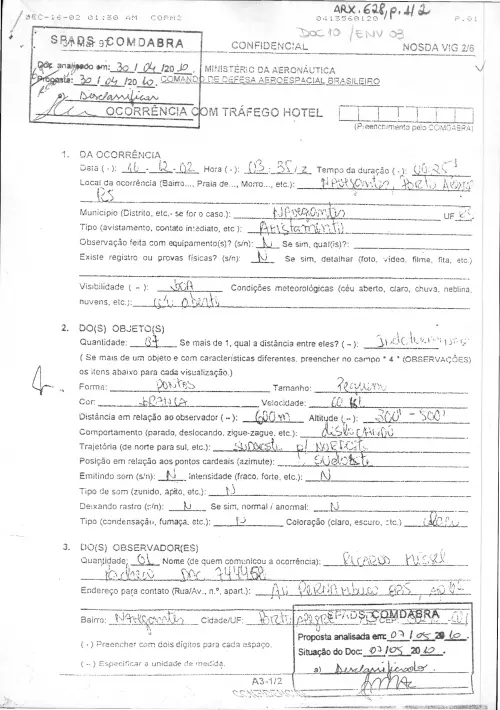 DEC-16-02 01:50 AM COPM2 0413560120 P.01
ARX. 628, p. 1/2
DOC 10 / ENV 03
SPADS COMDABRA
CONFIDENCIAL
NOSDA VIG 2/6
Doc analisado em: 30 / 04 /2010
MINISTÉRIO DA AERONÁUTICA
Proposta: 30 / 04 /2010
COMANDO DE DEFESA AEROESPACIAL BRASILEIRO
a) Desclassificar
OCORRÊNCIA COM TRÁFEGO HOTEL
(Preenchimento pelo COMDABRA)
1. DA OCORRÊNCIA
Data (-): 16 - 12 - 02 Hora (-): 03:35 Tempo da duração (-):
Local da ocorrência (Bairro..., Praia de..., Morro..., etc.): Navegantes, Porto Alegre
RS
Município (Distrito, etc.- se for o caso.): Navegantes UF RS
Tipo (avistamento, contato imediato, etc): Avistamento
Observação feita com equipamento(s)? (s/n): N Se sim, qual(is)?:
Existe registro ou provas físicas? (s/n): N Se sim, detalhar (foto, vídeo, filme, fita, etc)
Visibilidade ( ~ ): BOA Condições meteorológicas (céu aberto, claro, chuva, neblina,
nuvens, etc.): céu aberto
2. DO(S) OBJETO(S)
Quantidade: 07 Se mais de 1, qual a distância entre eles? ( ~ ):
( Se mais de um objeto e com características diferentes, preencher no campo " 4 " (OBSERVAÇÕES)
os itens abaixo para cada visualização.)
Forma: PONTOS Tamanho: Pequeno
Cor: BRANCA Velocidade:
Distância em relação ao observador ( ~ ): 600m Altitude ( ~ ): 300' - 500'
Comportamento (parado, deslocando, zigue-zague, etc.): deslocando
Trajetória (de norte para sul, etc.): sudoeste p/
Posição em relação aos pontos cardeais (azimute): sudoeste
Emitindo som (s/n): N Intensidade (fraco, forte, etc.): N
Tipo de som (zunido, apito, etc.): N
Deixando rastro (s/n): N Se sim, normal / anormal: N
Tipo (condensação, fumaça, etc.): N Coloração (claro, escuro, etc.)
3. DO(S) OBSERVADOR(ES)
Quantidade: 01 Nome (de quem comunicou a ocorrência): RICARDO
Endereço para contato (Rua/Av., n.º, apart.): Av PERNAMBUCO
Bairro: Navegantes Cidade/UF: Porto Alegre CEP
( - ) Preencher com dois dígitos para cada espaço.
( ~ ) Especificar a unidade de medida.
SPADS COMDABRA
Proposta analisada em: 07 / 05 / 2010
Situação do Doc: 07 / 05 / 2010
a) Desclassificado
A3-1/2
CONFIDENCIAL